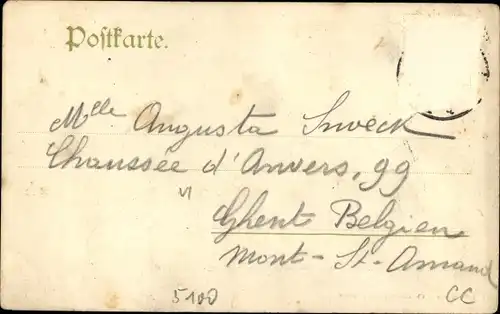 Postkarte.
Mlle Angusta Inveck
Chaussée d'Anvers, 99
Ghent Belgien
Mont-St-Amand
5100
CC